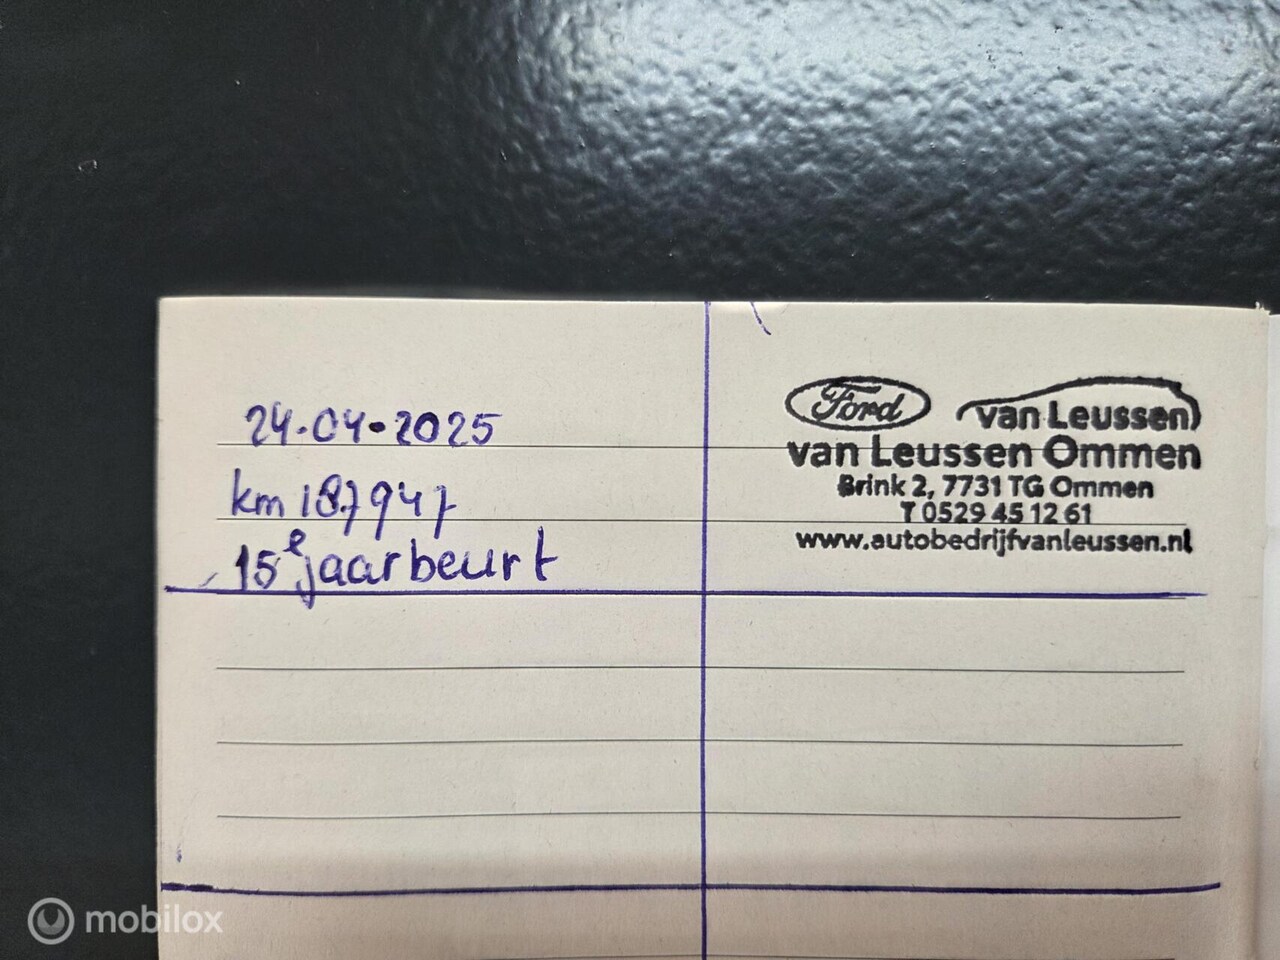 24-04-2025
km 187947
15e jaarbeurt
Ford
van Leussen
van Leussen Ommen
Brink 2, 7731 TG Ommen
T 0529 45 12 61
www.autobedrijfvanleussen.nl
mobilox